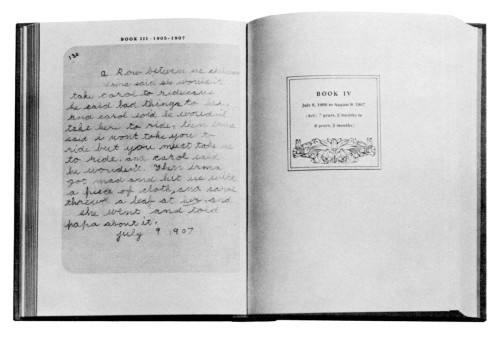 BOOK III · 1905-1907
130
a Row between us children
Irma said she wouldn't
take carol to ride cause
he said bad things to her,
and carol said he wouldn't
take her to ride, then irma
said i wont take you to
ride but you must take us
to ride, and carol said
he wouden't. Then irma
got mad and hit us with
a piece of cloth, and carol
threw a leaf at her, and
she went and told
papa about it.
July 9 1907
BOOK IV
July 8, 1906 to August 9, 1907
(Act. 7 years, 2 months to
8 years, 3 months)